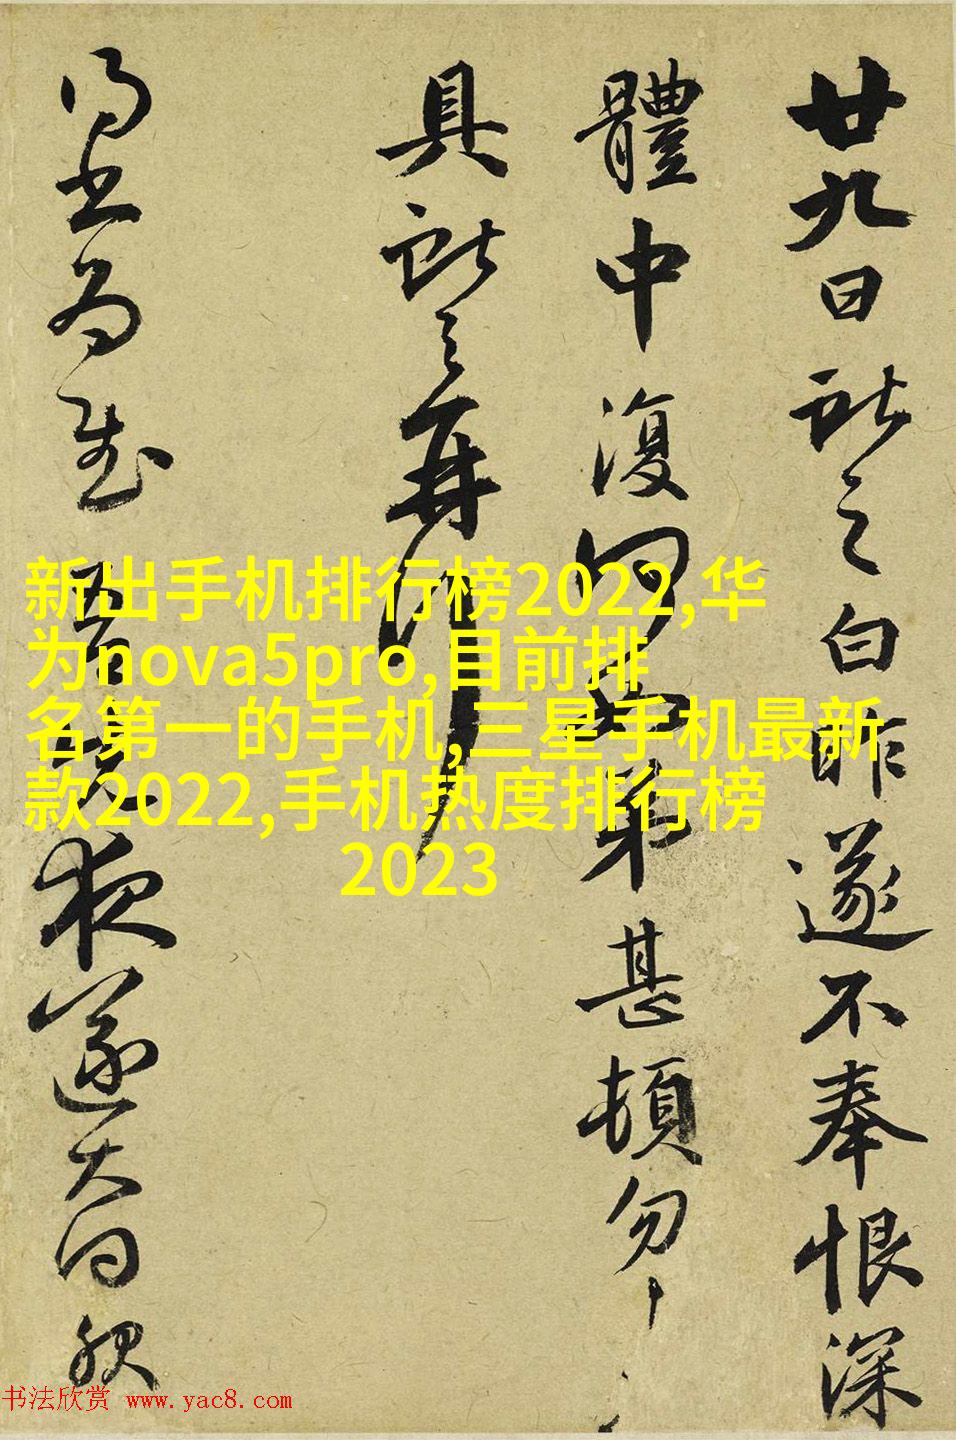 廿九日献之白昨遂不奉恨深
體中復何如弟甚頓勿勿
具献之再拜
得書為慰吾
夜遂大
新出手机排行榜2022,华
为nova5pro,目前排
名第一的手机,三星手机最新
款2022,手机热度排行榜
2023
书法欣赏 www.yac8.com